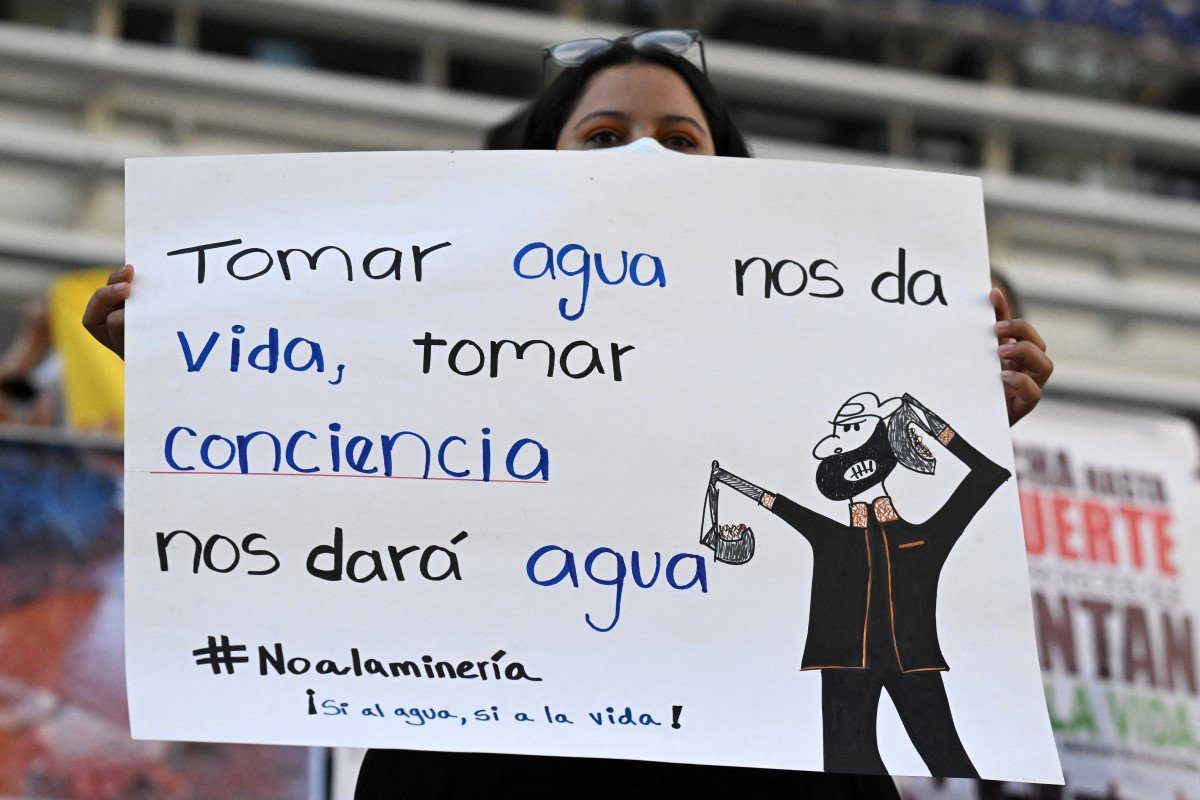 Tomar agua nos da
vida, tomar
conciencia
nos dará agua
#Noalaminería
¡Si al agua, si a la vida!
HASTA
LA VIDA